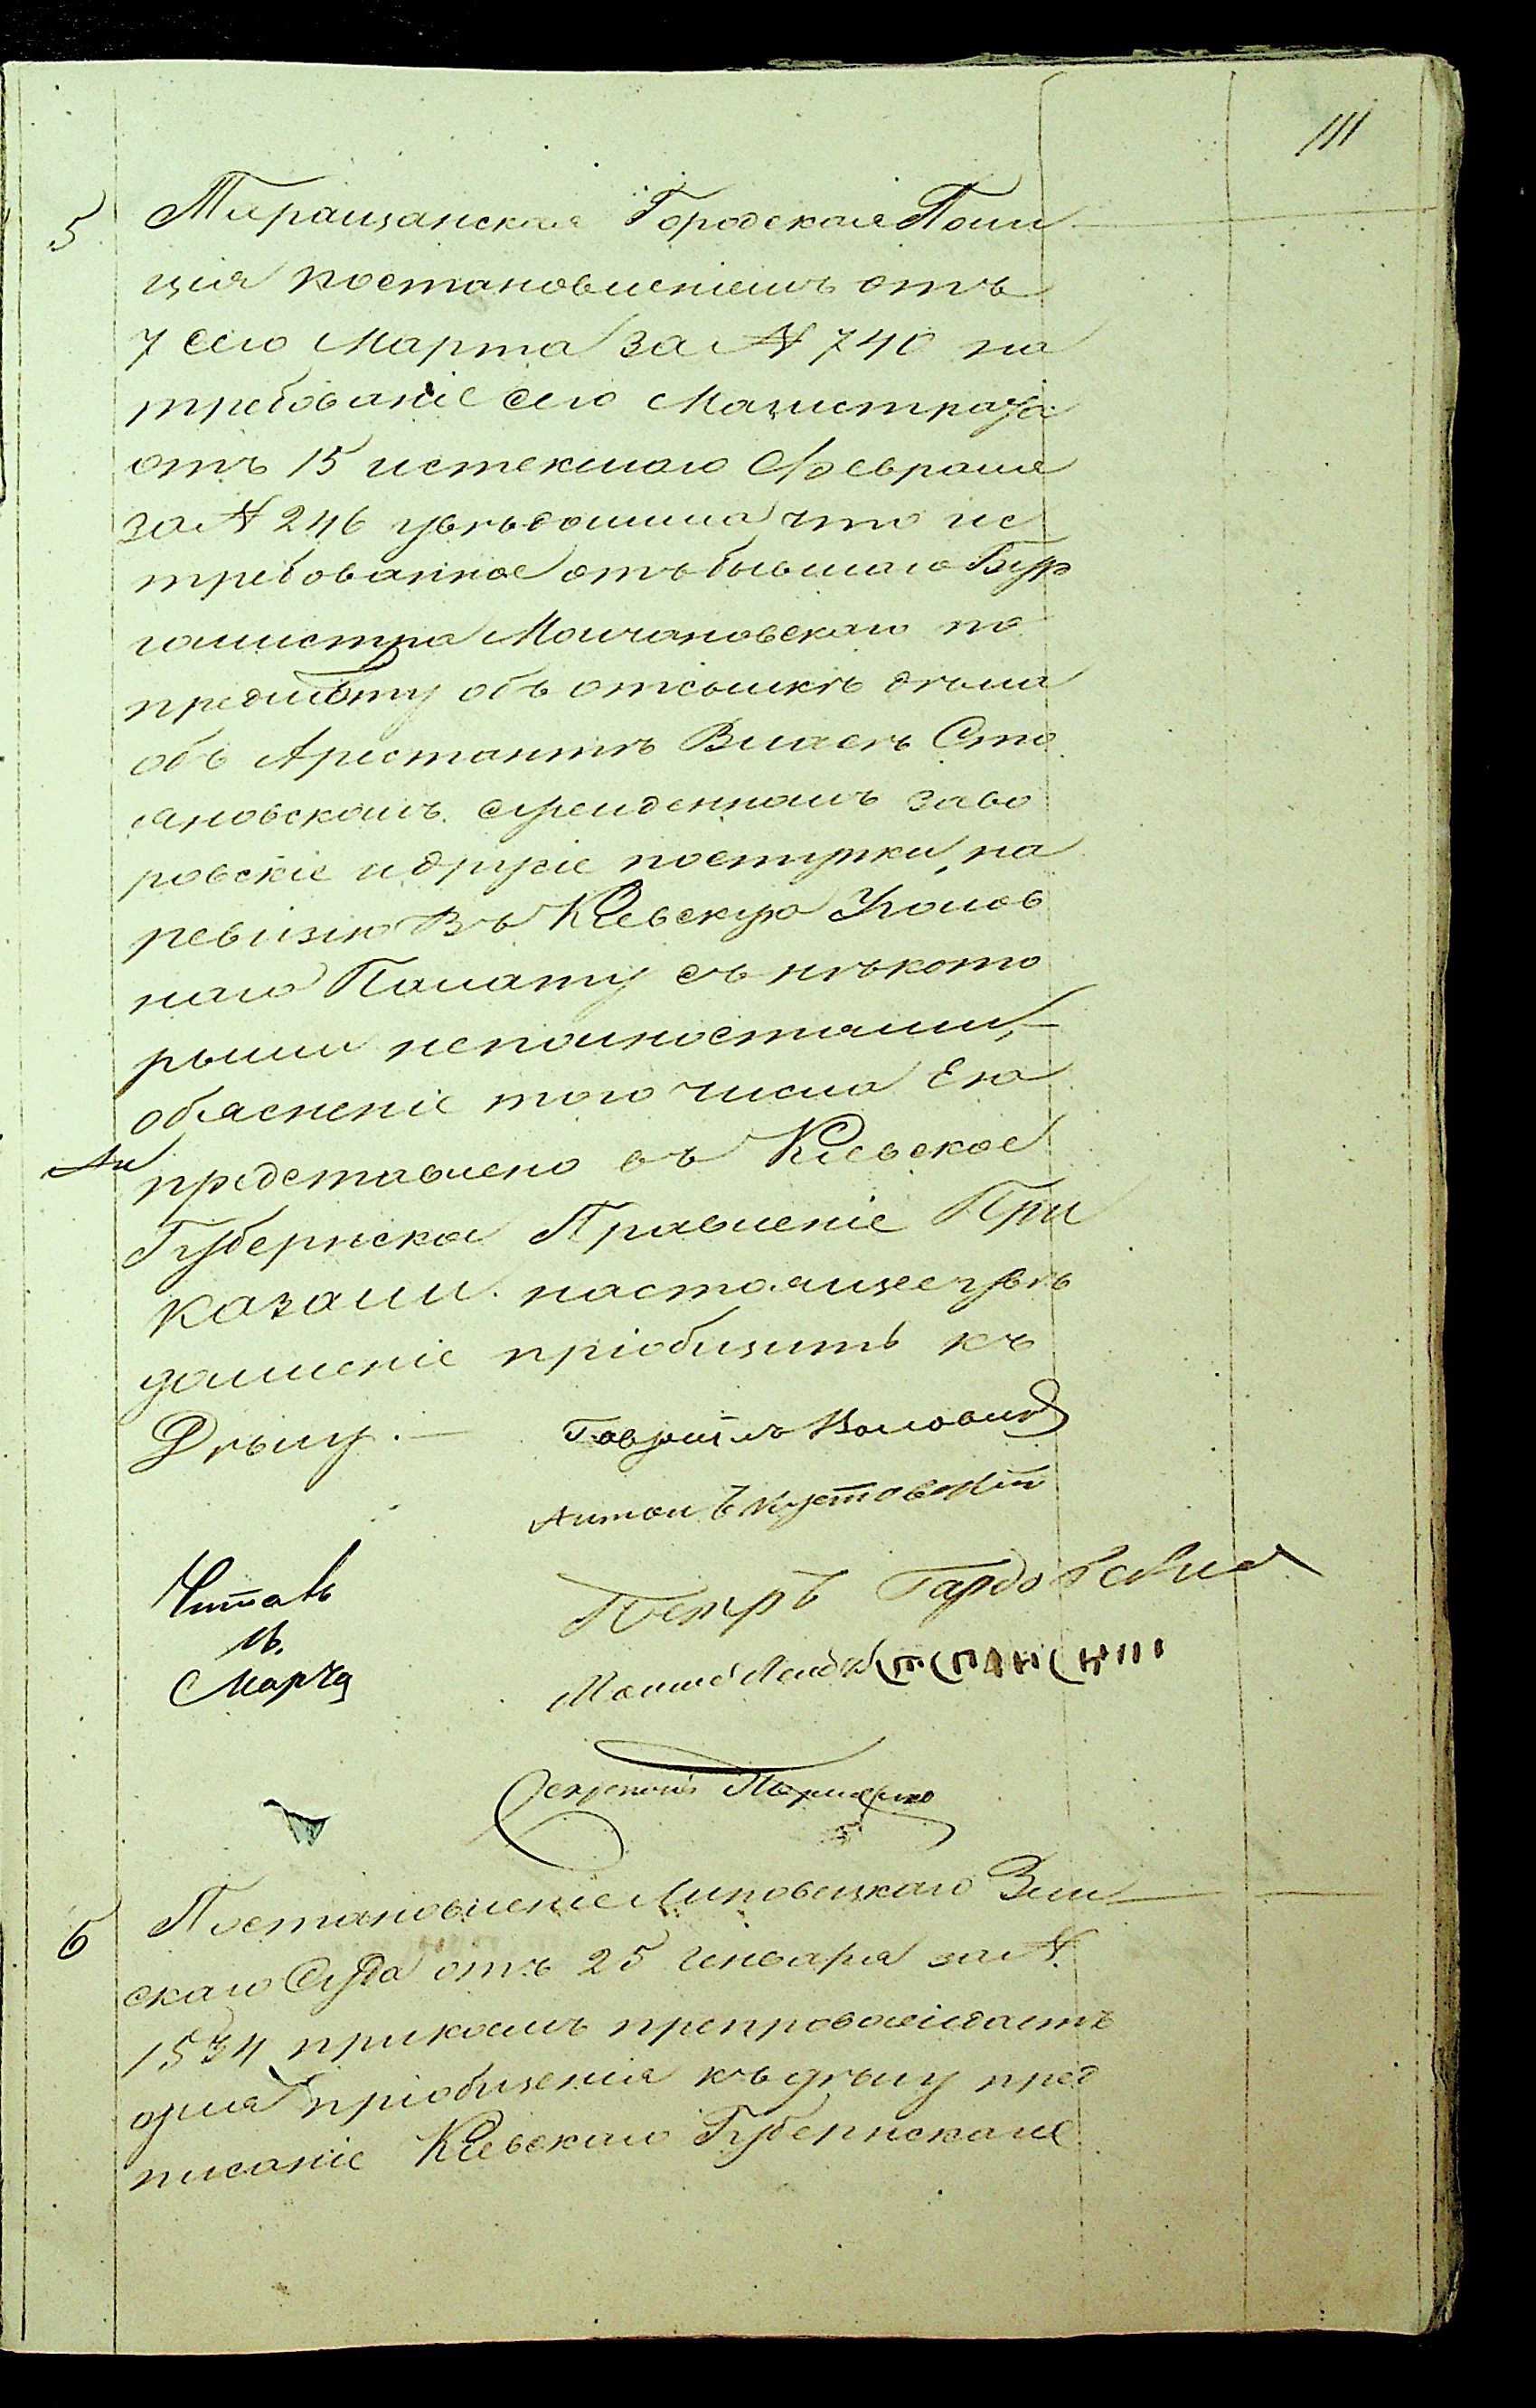 111
5 Таращанская Городская Поли
ція постановленіемъ отъ
7 сего Марта за № 740 на
требованіе сего Магистрата
отъ 15 истекшаго Февраля
за № 246 увѣдомила что ис
требованное отъ бывшаго Бур
гомистра Молчановскаго по
предмѣту объ отсылкѣ дѣла
объ Арестантѣ Власѣ Сто
яновскомъ сужденномъ за во
ровскіе и другіе поступки, на
ревизію въ Кіевскую Уголов
наго Палату съ нѣкото
рыми неполностями, —
объясненіе того числа Ею
представлено въ Кіевское
Губернское Правленіе При
казали. настоящее увѣ
домленіе пріобщить къ
Дѣлу. —
Гавріилъ
Антонъ
Читалъ
Петръ
Марта
Секретарь
6 Постановленіе Липовецкаго Зем
скаго Суда отъ 25 Генваря за №
1534 прикоемъ препровождаетъ
для пріобщенія къ дѣлу пред
писаніе Кіевскаго Губернскаго